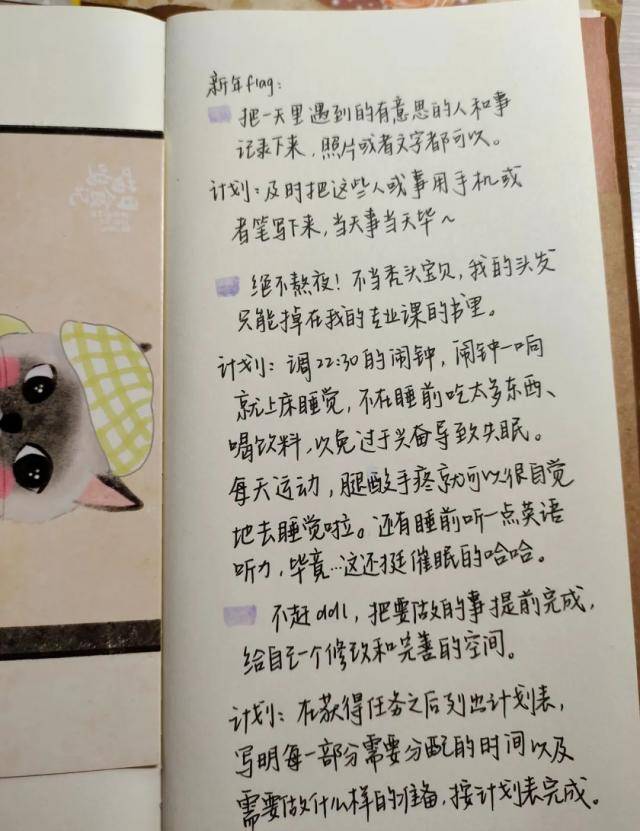 新年flag:
把一天里遇到的有意思的人和事
记录下来，照片或者文字都可以。
计划：及时把这些人或事用手机或
者笔写下来，当天事当天毕～
绝不熬夜！不当秃头宝贝，我的头发
只能掉在我的专业课的书里。
计划：调22:30的闹钟，闹钟一响
就上床睡觉，不在睡前吃太多东西、
喝饮料，以免过于兴奋导致失眠。
每天运动，腿酸手疼就可以很自觉
地去睡觉啦。还有睡前听一点英语
听力，毕竟…这还挺催眠的哈哈。
不赶ddl，把要做的事提前完成，
给自己一个修改和完善的空间。
计划：在获得任务之后列出计划表，
写明每一部分需要分配的时间以及
需要做什么样的准备，按计划表完成。